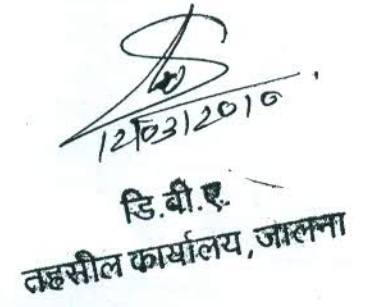 12/03/2010
डि.बी.ए.
तहसील कार्यालय, जालना